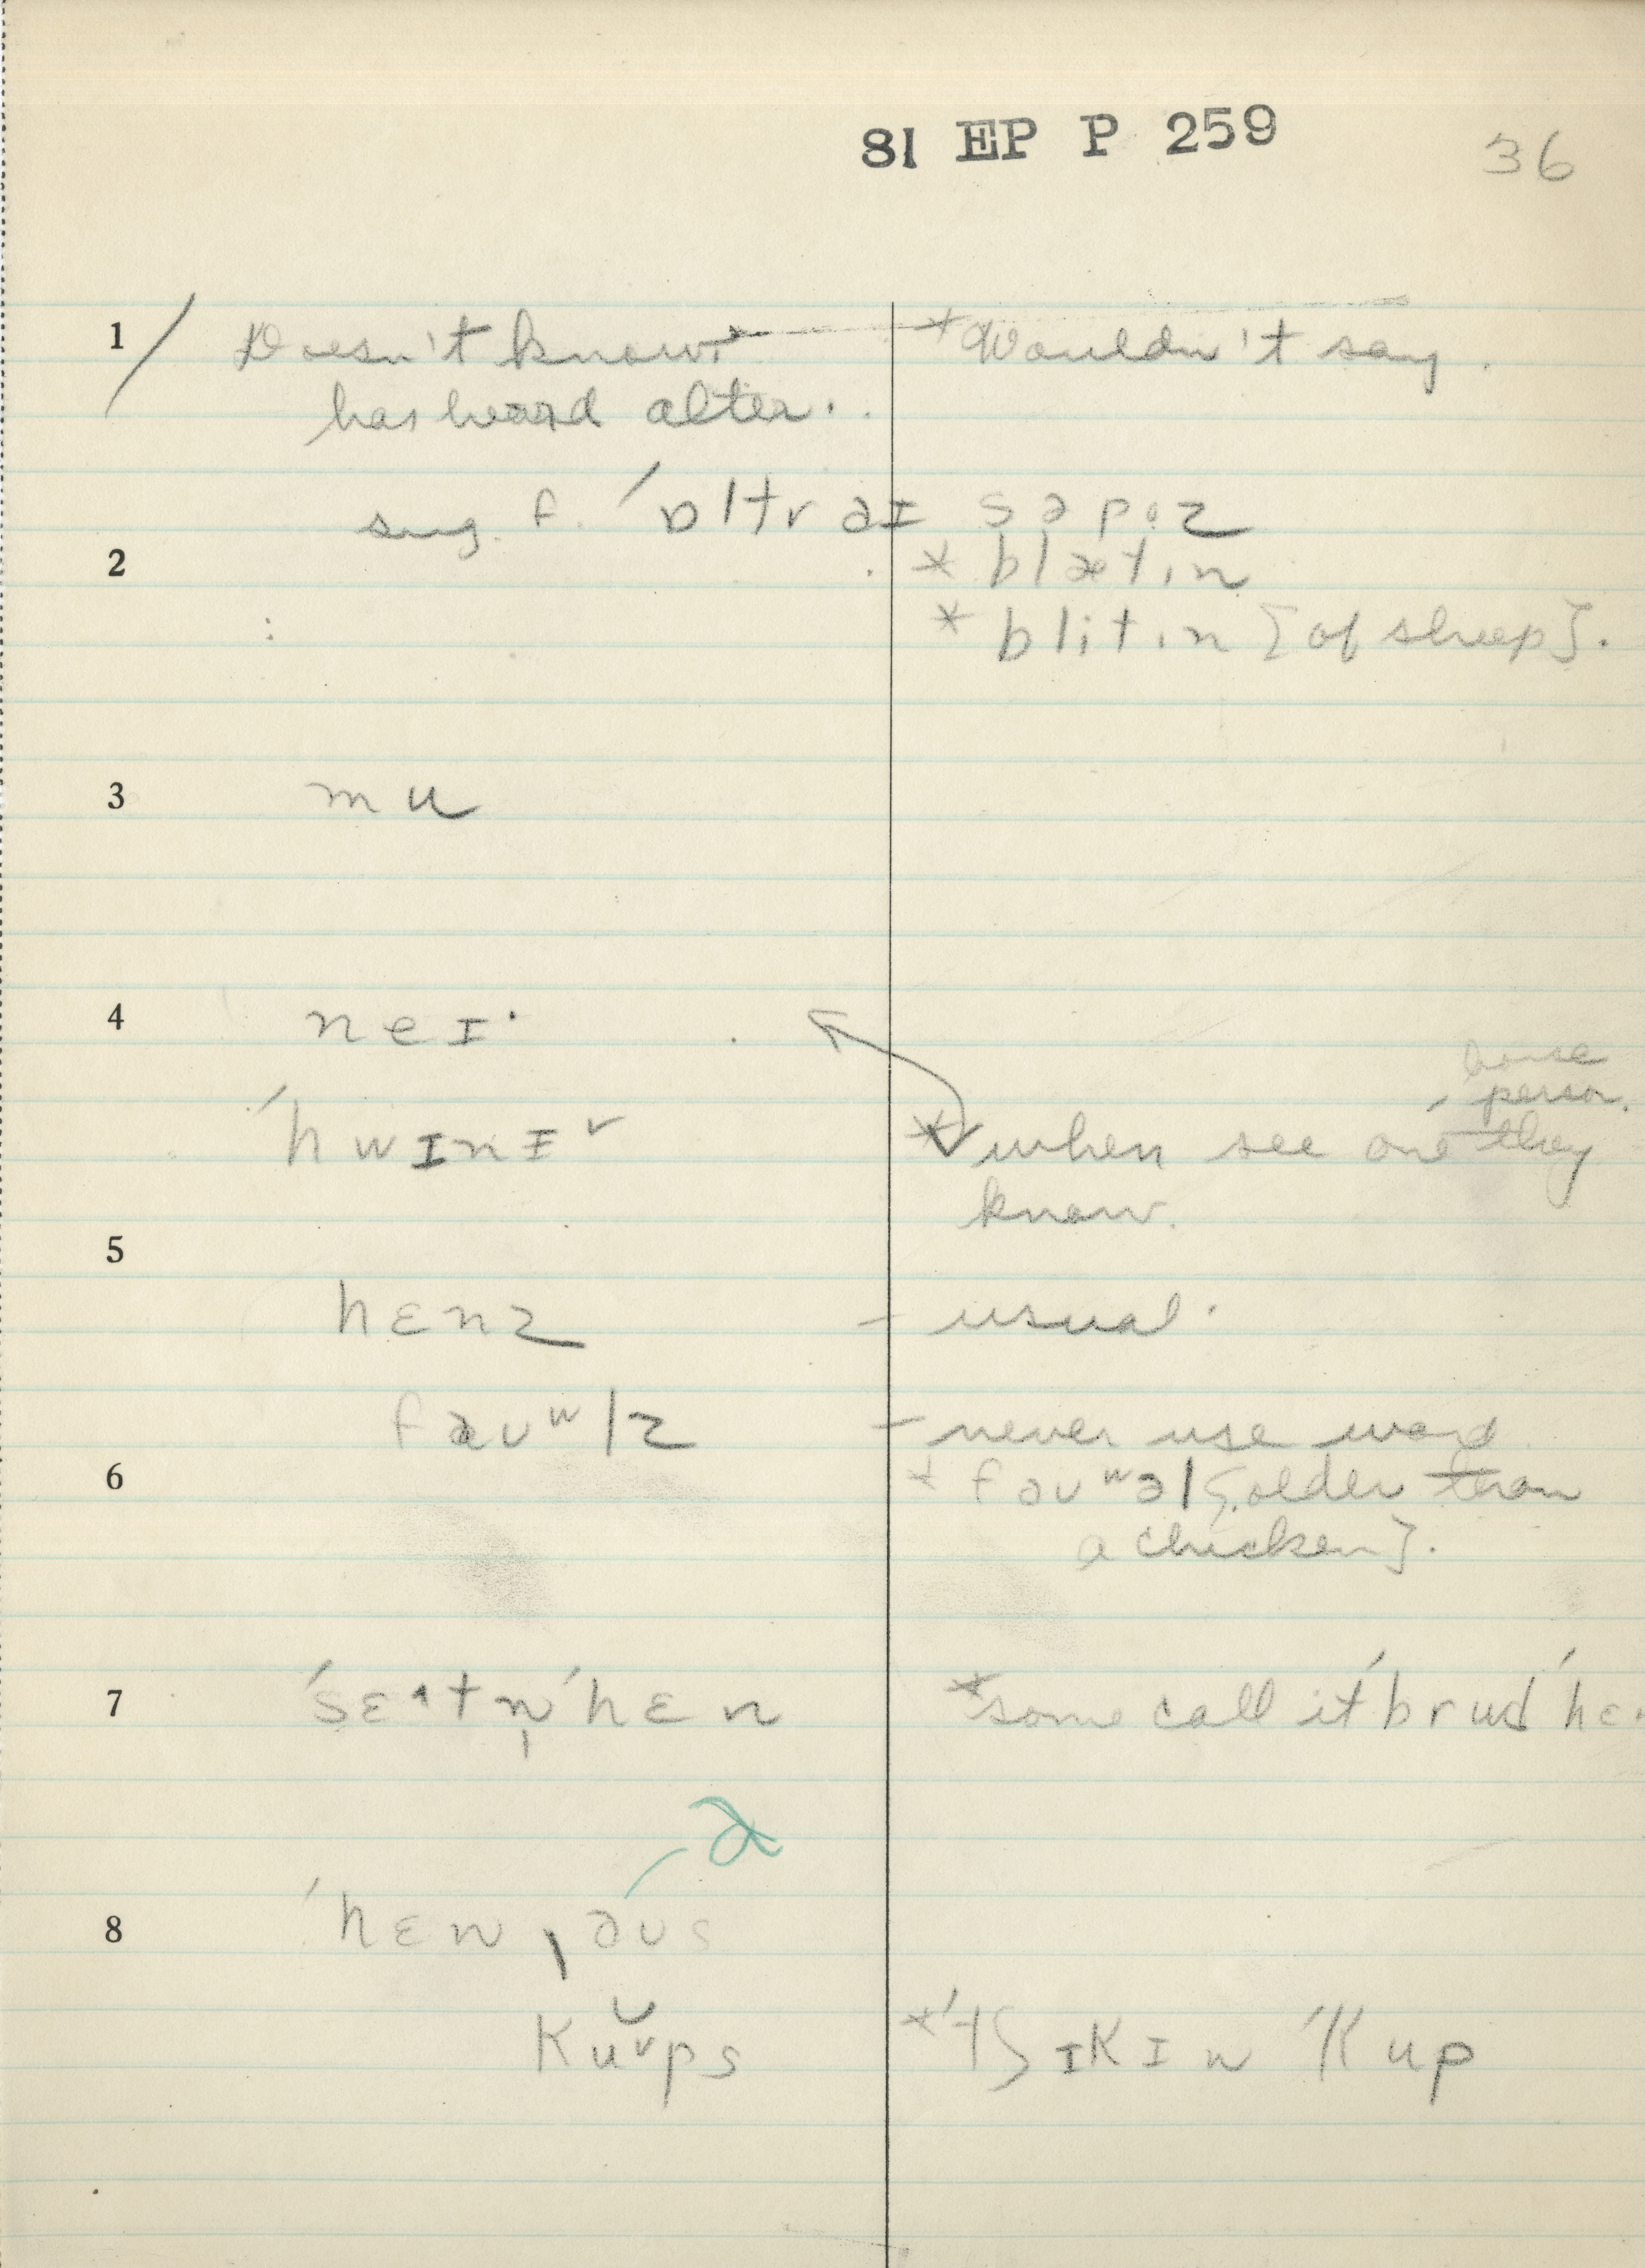 81 EP P 259
36
1 / Doesn't know. *Wouldn't say.
has heard alter.
sug. f. ˈɒltr aɪ səpoz
2 * blætin
* blitin [of sheep].
3 mu
4 neɪ·
horse
person.
ˈhwɪnɪ˅ * when see one they
know.
5
hɛnz – usual.
faʊʷlz – never use word
6 + faʊʷəl [older than
a chicken].
7 ˈsɛ·tn̩ ˈhɛn *some call it ˈbrud ˈhɛn
a
8 ˈhɛnˌaʊs
Ku˅ps *ˈtʃɪKɪn ˈKup